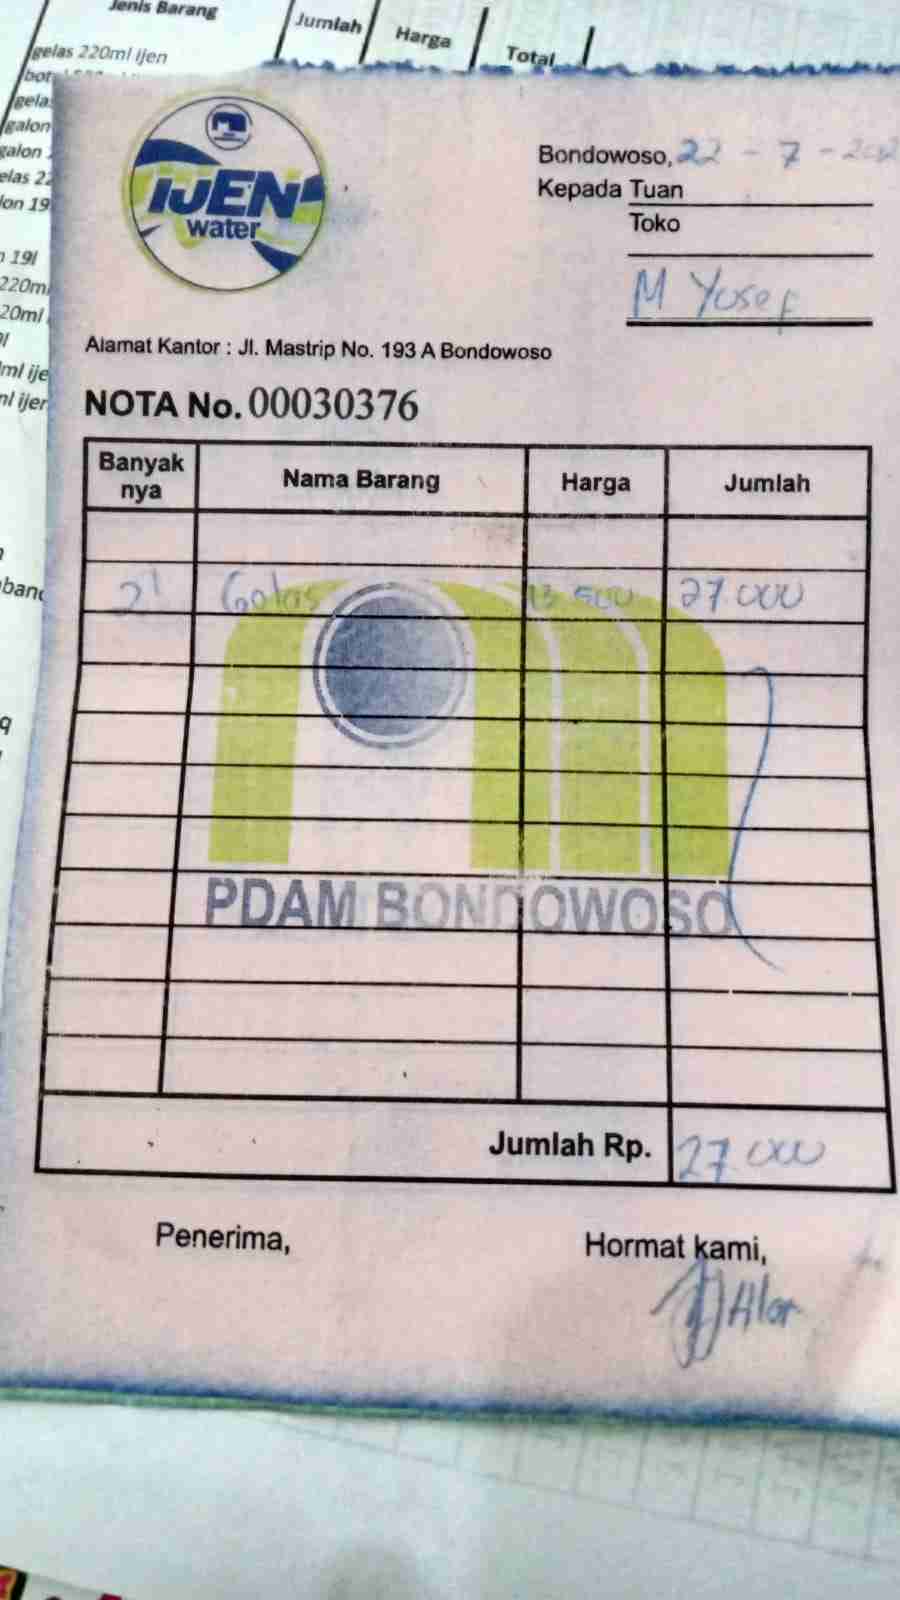 Jenis Barang
Jumlah
Harga
Total
gelas 220ml ijen
gelas
galon
galon
elas 22
lon 19
19l
220ml
20ml
ml ije
ml ijen
IJEN
water
Bondowoso, 22 - 7 - 202
Kepada Tuan
Toko
M Yosef
Alamat Kantor : Jl. Mastrip No. 193 A Bondowoso
NOTA No. 00030376
Banyak nya Nama Barang Harga Jumlah
2 Gelas 13 500 27.000
PDAM BONDOWOSO
Jumlah Rp. 27.000
Penerima,
Hormat kami,